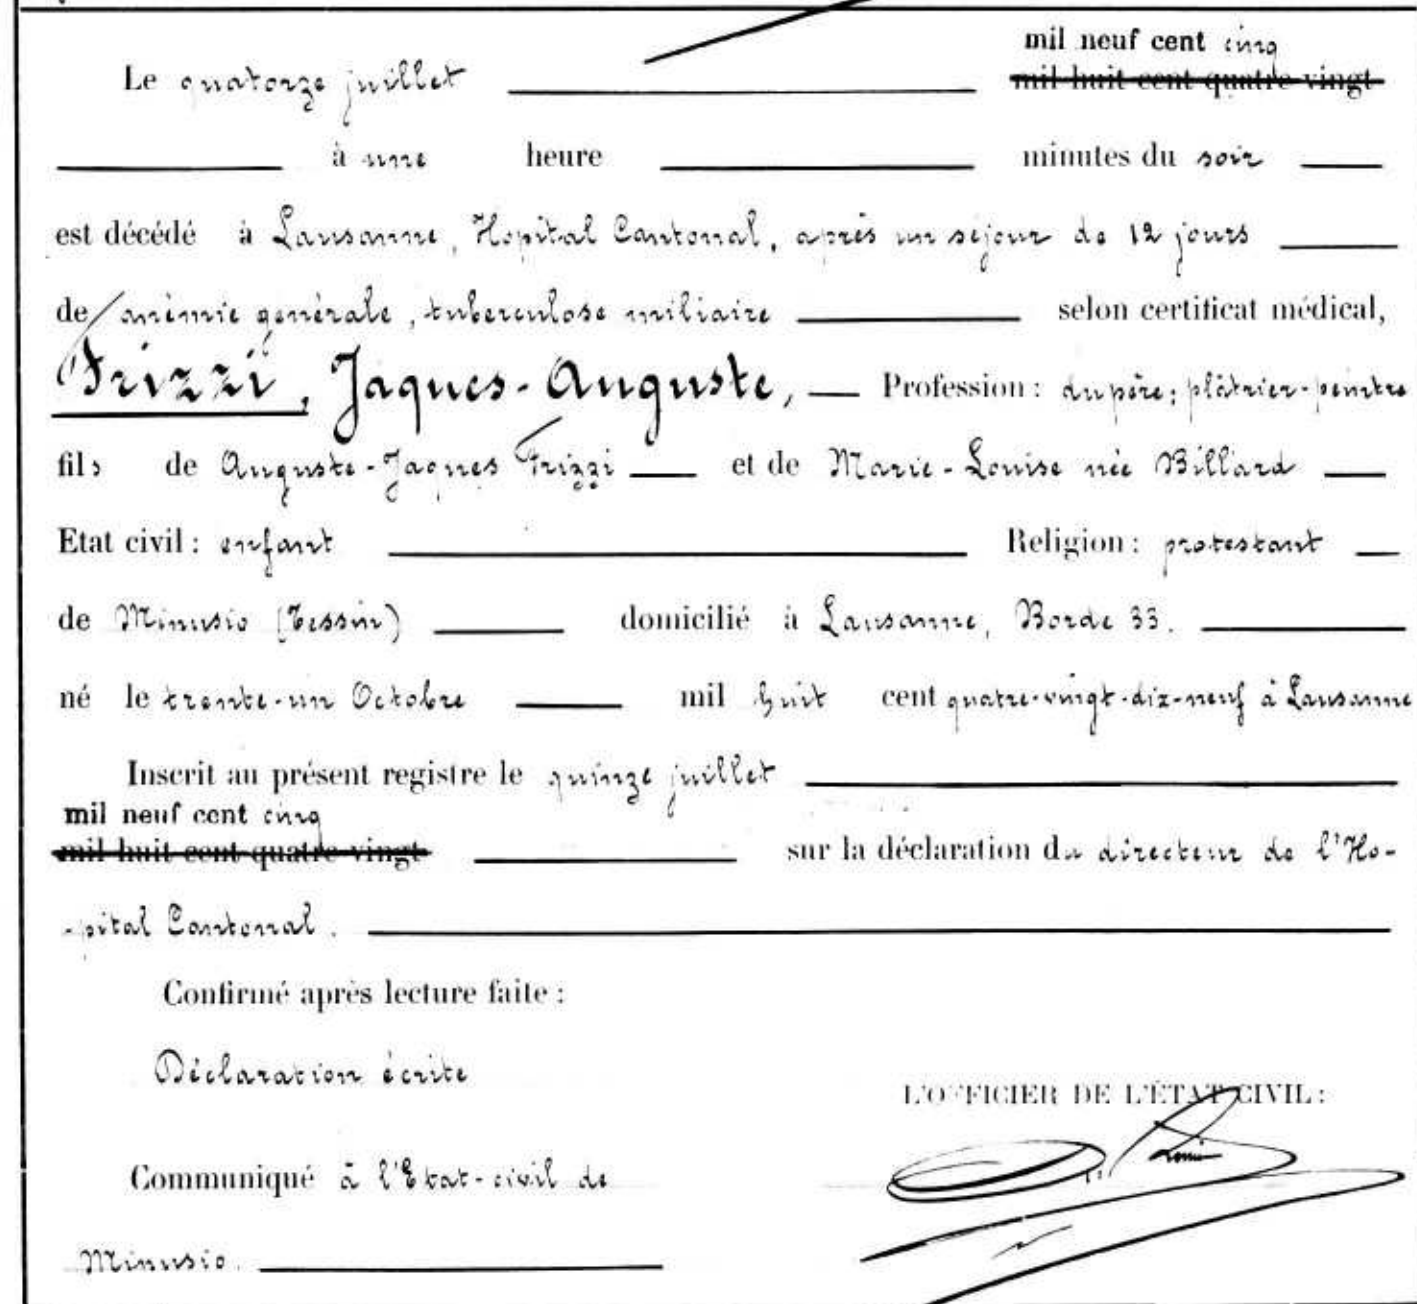 Le quatorze juillet mil neuf cent cinq
mil huit cent quatre-vingt
à une heure minutes du soir
est décédé à Lausanne, Hopital Cantonal, après un séjour de 12 jours
de anémie générale, tuberculose miliaire selon certificat médical,
Frizzi, Jaques-Auguste, Profession : du père: plâtrier-peintre
fils de Auguste-Jaques Frizzi et de Marie-Louise née Billard
Etat civil : enfant Religion : protestant
de Minusio (Tessin) domicilié à Lausanne, Borde 33.
né le trente-un Octobre mil huit cent quatre-vingt-dix-neuf à Lausanne
Inscrit au présent registre le quinze juillet
mil neuf cent cinq
mil huit cent quatre-vingt sur la déclaration du directeur de l'Ho-
-pital Cantonal.
Confirmé après lecture faite :
Déclaration écrite
L'OFFICIER DE L'ÉTAT CIVIL :
Communiqué à l'Etat-civil de
Minusio.